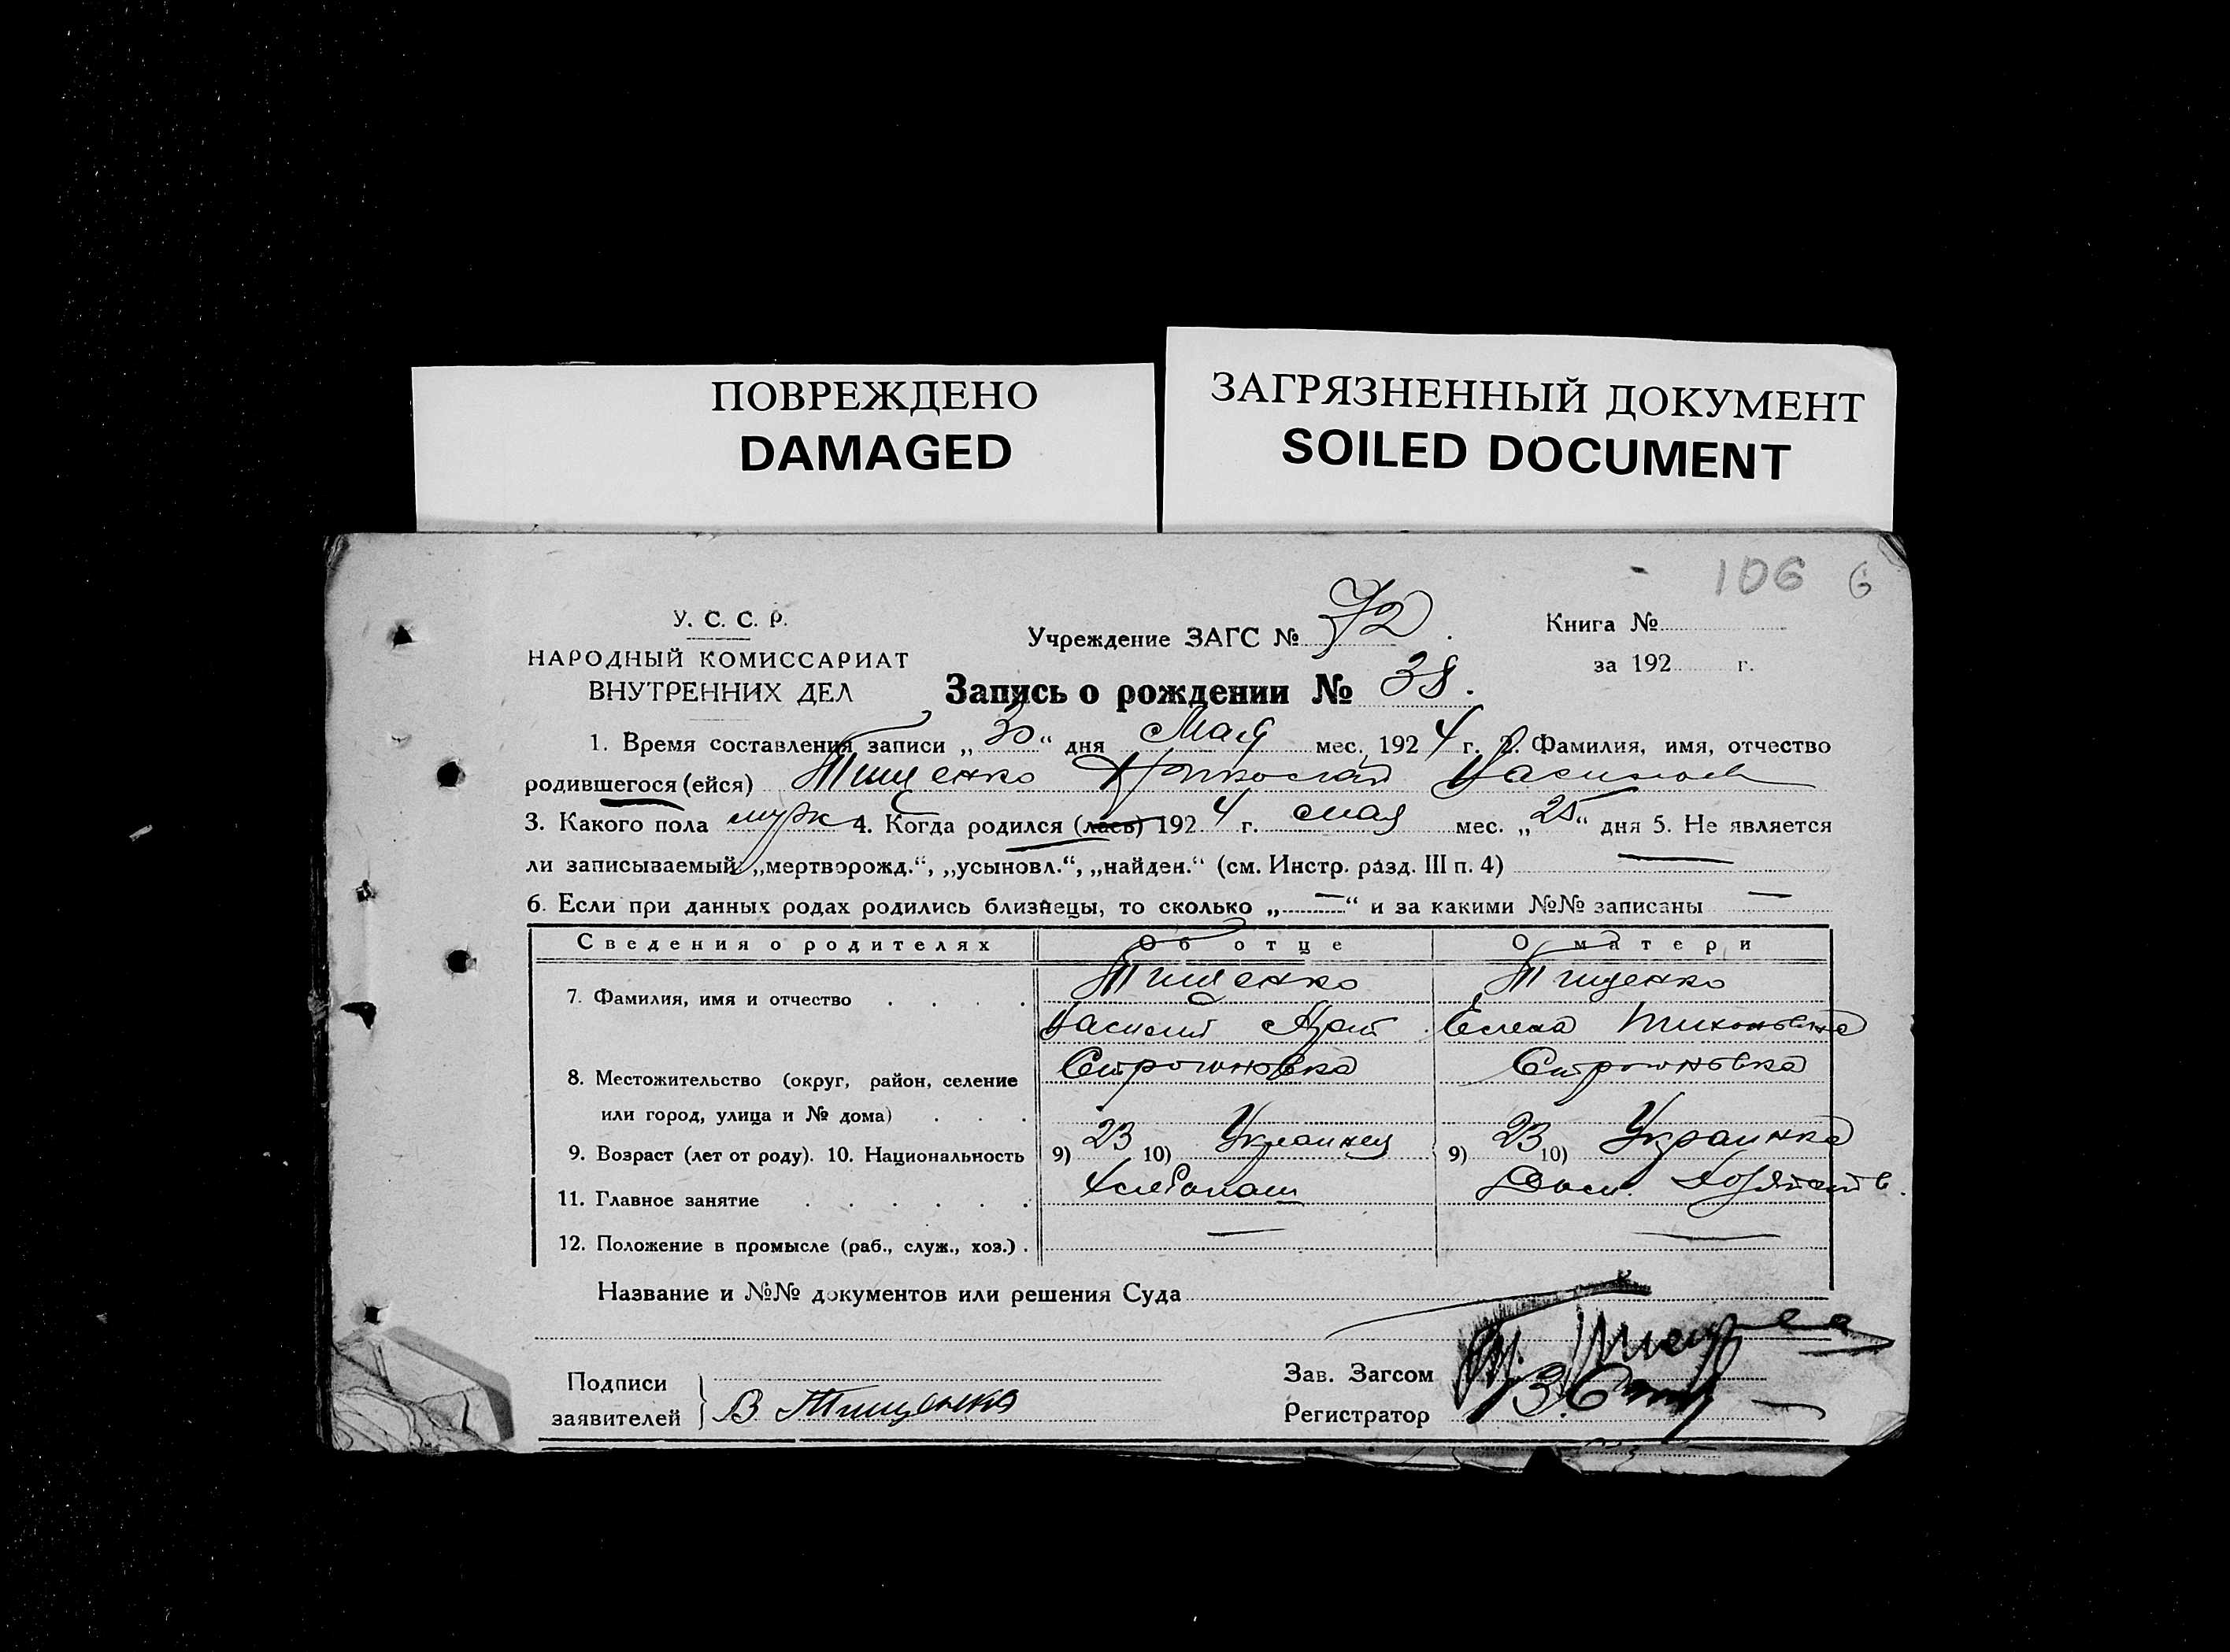 ПОВРЕЖДЕНО
DAMAGED
ЗАГРЯЗНЕННЫЙ ДОКУМЕНТ
SOILED DOCUMENT
106 6
У. С. С. Р.
НАРОДНЫЙ КОМИССАРИАТ
ВНУТРЕННИХ ДЕЛ
Учреждение ЗАГС № 72.
Книга №
за 192 г.
Запись о рождении № 38.
1. Время составления записи „30“ дня Мая мес. 1924 г. 2. Фамилия, имя, отчество
родившегося (ейся) Тищенко Николай Васильев
3. Какого пола муж 4. Когда родился (лась) 1924 г. мая мес. „25“ дня 5. Не является
ли записываемый „мертворожд.“, „усыновл.“, „найден.“ (см. Инстр. разд. III п. 4) —
6. Если при данных родах родились близнецы, то сколько „—“ и за какими №№ записаны —
Сведения о родителях Об отце О матери
7. Фамилия, имя и отчество Тищенко Тищенко
Василий Елена Тихоновна
8. Местожительство (округ, район, селение Строгоновка Строгоновка
или город, улица и № дома)
9. Возраст (лет от роду). 10. Национальность 9) 23 10) Украинец 9) 23 10) Украинка
11. Главное занятие Хлебопаш Дом. Хозяйств.
12. Положение в промысле (раб., служ., хоз.) — —
Название и №№ документов или решения Суда
Подписи
заявителей В Тищенко
Зав. Загсом
Регистратор